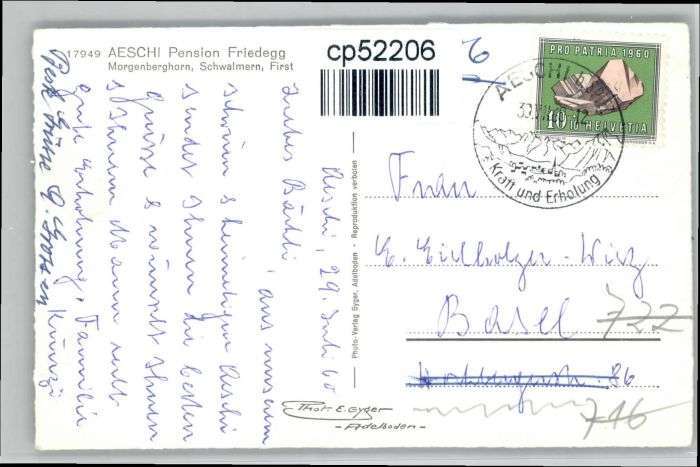 17949 AESCHI Pension Friedegg
Morgenberghorn, Schwalmern, First
cp52206
6
PRO PATRIA 1960
10+10 HELVETIA
AESCHI
Kraft und Erholung
Aeschi, 29. Juli 60
Liebes Bäschli
aus unserem
schönen & heimeligen Aeschi
sendet Ihnen die besten
Grüsse & wünscht Ihnen
& Ihrem Mann recht
gute Erholung, Familie
Künzi
Beste Grüsse
Photo-Verlag Gyger, Adelboden - Reproduktion verboten
Frau
E. Eichholzer-Wirz
Basel
722
86
716
Phot. E. Gyger
-Adelboden-